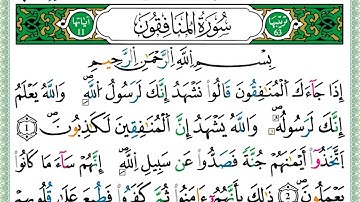 ترتيبها ٦٣ سُورَةُ الْمُنَافِقُونَ آياتها ١١
بِسْمِ اللَّهِ الرَّحْمَٰنِ الرَّحِيمِ
إِذَا جَآءَكَ الْمُنَٰفِقُونَ قَالُوا۟ نَشْهَدُ إِنَّكَ لَرَسُولُ اللَّهِ ۗ وَاللَّهُ يَعْلَمُ
إِنَّكَ لَرَسُولُهُۥ وَاللَّهُ يَشْهَدُ إِنَّ الْمُنَٰفِقِينَ لَكَٰذِبُونَ ١
اتَّخَذُوٓا۟ أَيْمَٰنَهُمْ جُنَّةً فَصَدُّوا۟ عَن سَبِيلِ اللَّهِ ۚ إِنَّهُمْ سَآءَ مَا كَانُوا۟
يَعْمَلُونَ ٢ ذَٰلِكَ بِأَنَّهُمْ ءَامَنُوا۟ ثُمَّ كَفَرُوا۟ فَطُبِعَ عَلَىٰ قُلُوبِهِمْ